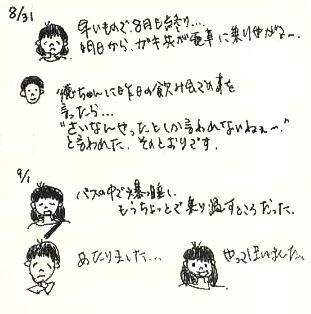 8/31
早いもので、8月も終り…
明日から、ガキ共が電車に乗りやがる～.
俺ちゃんに昨日の飲み会での事を
言ったら…
"さいなんやったとしか言われないねぇ～."
と言われた。そのとおりです。
9/1
バスの中で爆睡し、
もうちょっとで乗り過すところだった。
あたりました…
やってしまいました